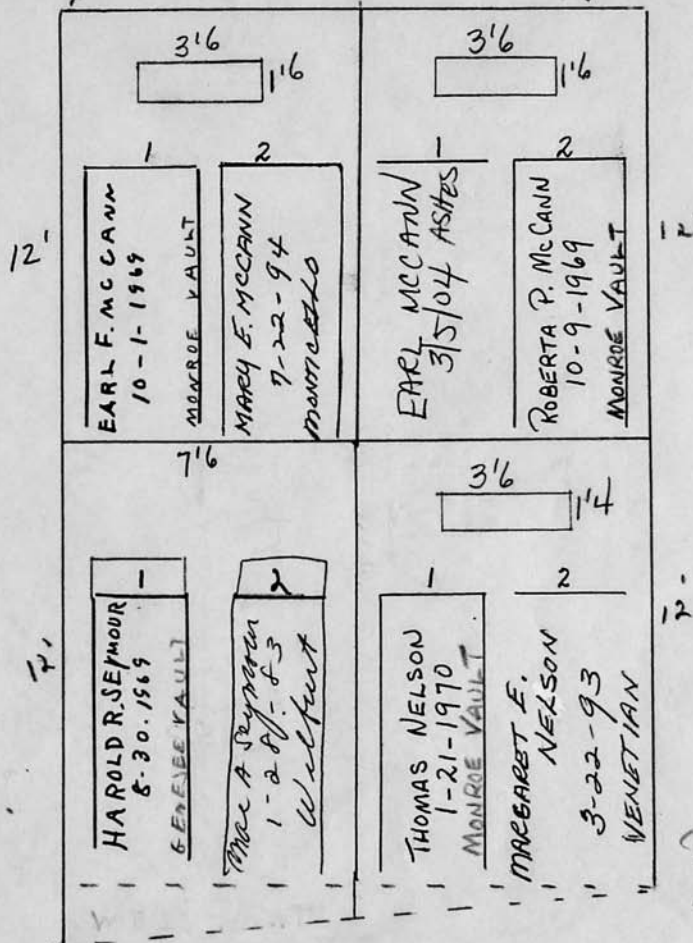 3'6
1'6
1
2
EARL F. MCCANN
10-1-1969
MONROE VAULT
MARY E. MCCANN
7-22-94
MONTICELLO
12'
3'6
1'6
1
2
EARL MCCANN
3/5/04 ASHES
ROBERTA P. MCCANN
10-9-1969
MONROE VAULT
7'6
1
2
HAROLD R. SEYMOUR
8-30.1969
GENESEE VAULT
Mae A Seymour
Wilbert
3'6
1'4
1
2
THOMAS NELSON
1-21-1970
MONROE VAULT
MARGARET E.
NELSON
3-22-93
VENETIAN
12'